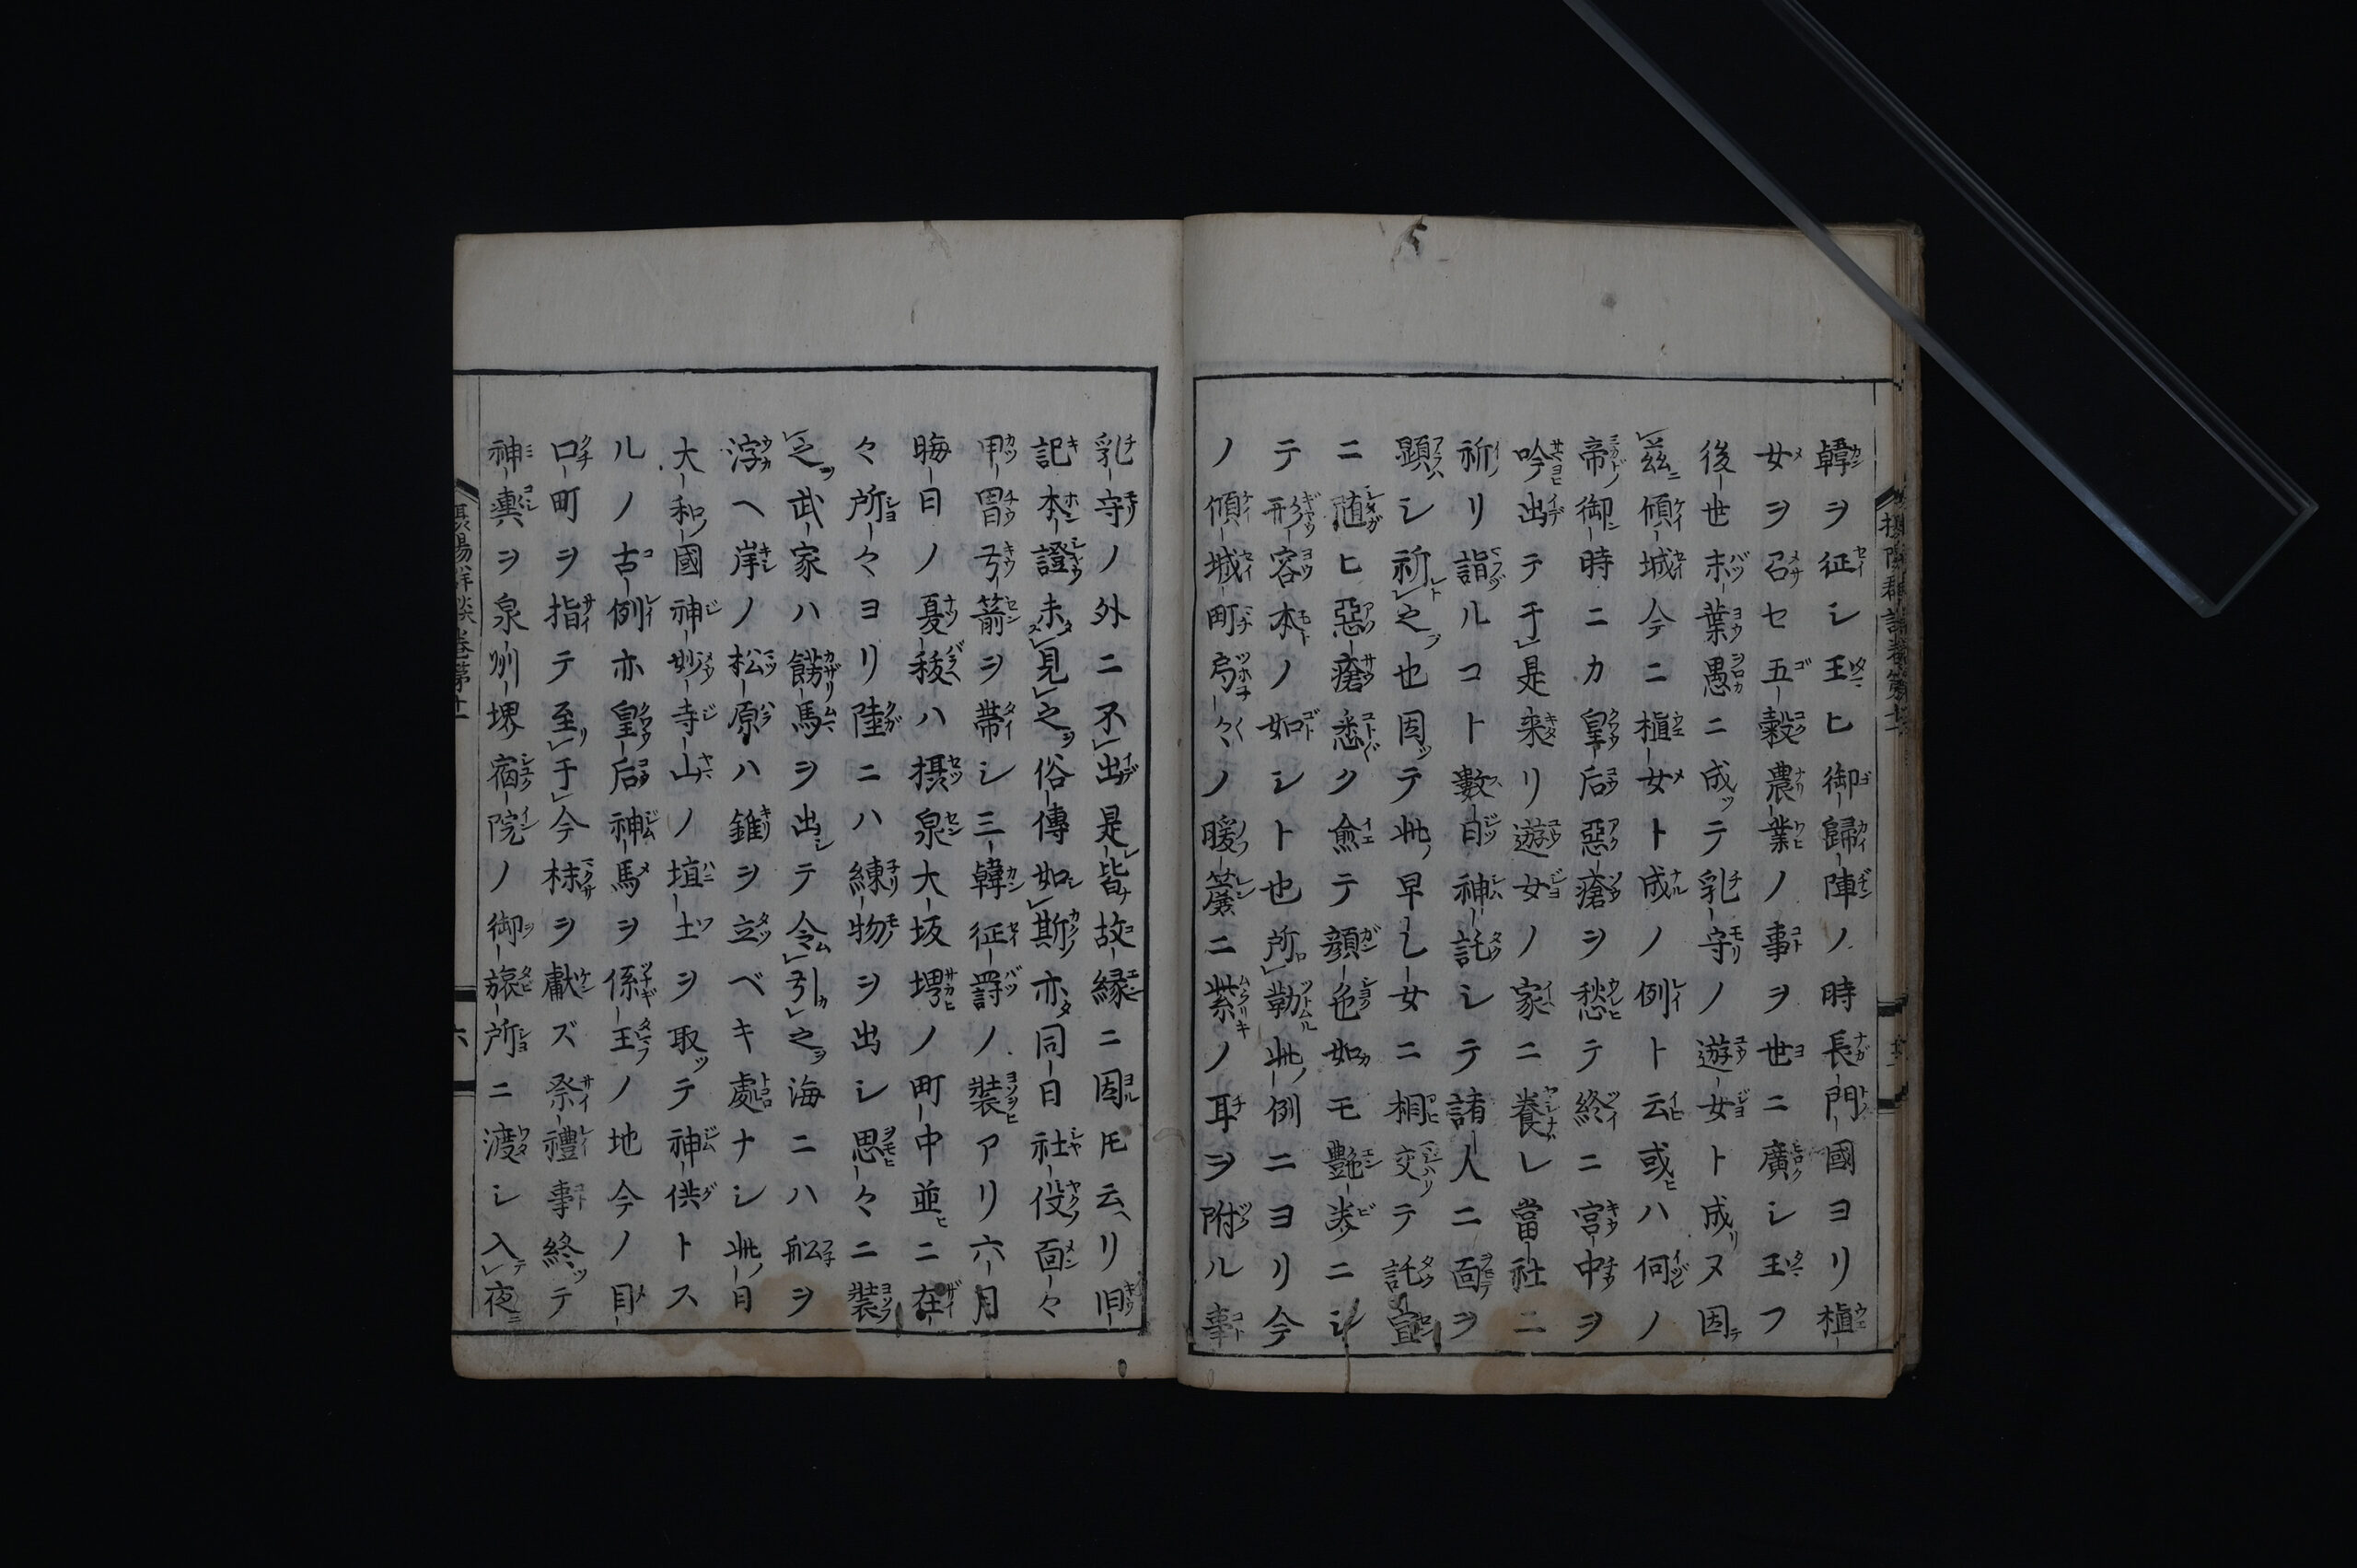 韓ヲ征シ玉ヒ御歸陣ノ時長門國ヨリ植
女ヲ召セ五穀農業ノ事ヲ世ニ廣シ玉フ
後世末葉愚ニ成テ乳守ノ遊女ト成ヌ因
茲傾城今ニ植女ト成ノ例ト云或ハ何ノ
帝御時ニカ皇后惡瘡ヲ愁テ終ニ宮中ヲ
吟出テ于是来リ遊女ノ家ニ養レ當社ニ
祈リ詣ルコト數日神託シテ諸人ニ面ヲ
顕シ祈之也因テ此早乙女ニ相交テ託宣
ニ随ヒ惡瘡悉ク愈テ顔色如モ艶美ニシ
テ形容本ノ如シト也所勤此例ニヨリ今
ノ傾城町局々ノ暖簾ニ紫ノ耳ヲ附ル事
乳守ノ外ニ不出是皆故縁ニ因モ云リ旧
記本證未見之俗傳如斯亦同日社役面々
甲冑弓箭ヲ帯シ三韓征罸ノ装アリ六月
晦日ノ夏秡ハ摂泉大坂堺ノ町中並ニ在
々所々ヨリ陸ニハ練物ヲ出シ思々ニ装
之武家ハ餝馬ヲ出テ令引之海ニハ舩ヲ
浮ヘ岸ノ松原ハ錐ヲ立ベキ處ナシ此日
大和國神妙寺山ノ埴土ヲ取テ神供トス
ルノ古例亦皇后神馬ヲ係王ノ地今ノ目
口町ヲ指テ至于今秣ヲ献ズ祭禮事終テ
神輿ヲ泉州堺宿院ノ御旅所ニ渡シ入夜
摂陽群談巻第十一